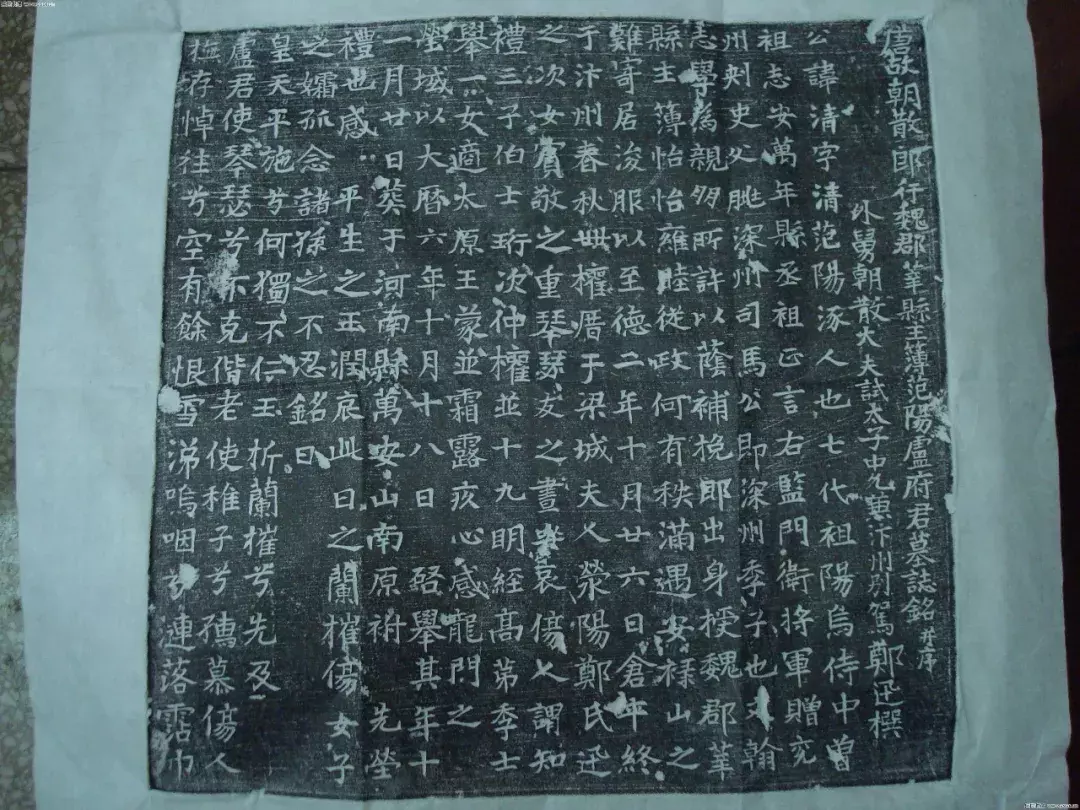 唐故朝散郎行魏郡莘縣主薄范陽盧府君墓誌銘并序
外舅朝散大夫試太子中允兼汴州別駕鄭迅撰
公諱清字清范陽涿人也七代祖陽烏侍中曾
祖志安萬年縣丞祖正言右監門衛將軍贈兖
州刺史父朓深州司馬公即深州季子也文翰
志學為親賓所許以蔭補挽郎出身授魏郡莘
縣主薄怡怡雍睦從政何有秩滿遇安祿山之
難寄居浚服以至德二年十月廿六日倉卒終
于汴州春秋卅權厝于梁城夫人滎陽鄭氏迅
之次女賓敬之重琴瑟友之晝哭哀傷人謂知
禮三子伯士珩次仲權並十九明經高第季士
舉一女適太原王蒙並霜露疚心感龍門之
塋域以大曆六年十月十八日 啓舉其年十
一月廿日葵于河南縣萬安山南原祔 先塋
禮也感 平生之玉潤哀此日之蘭摧傷女子
之孀孤念諸孫之不忍銘曰
皇天平施兮何獨不仁玉折蘭摧兮先及
盧君使琴瑟兮不克偕老使稚子兮孺慕傷人
撫存悼往兮空有餘恨雪涕嗚咽兮連落霑巾